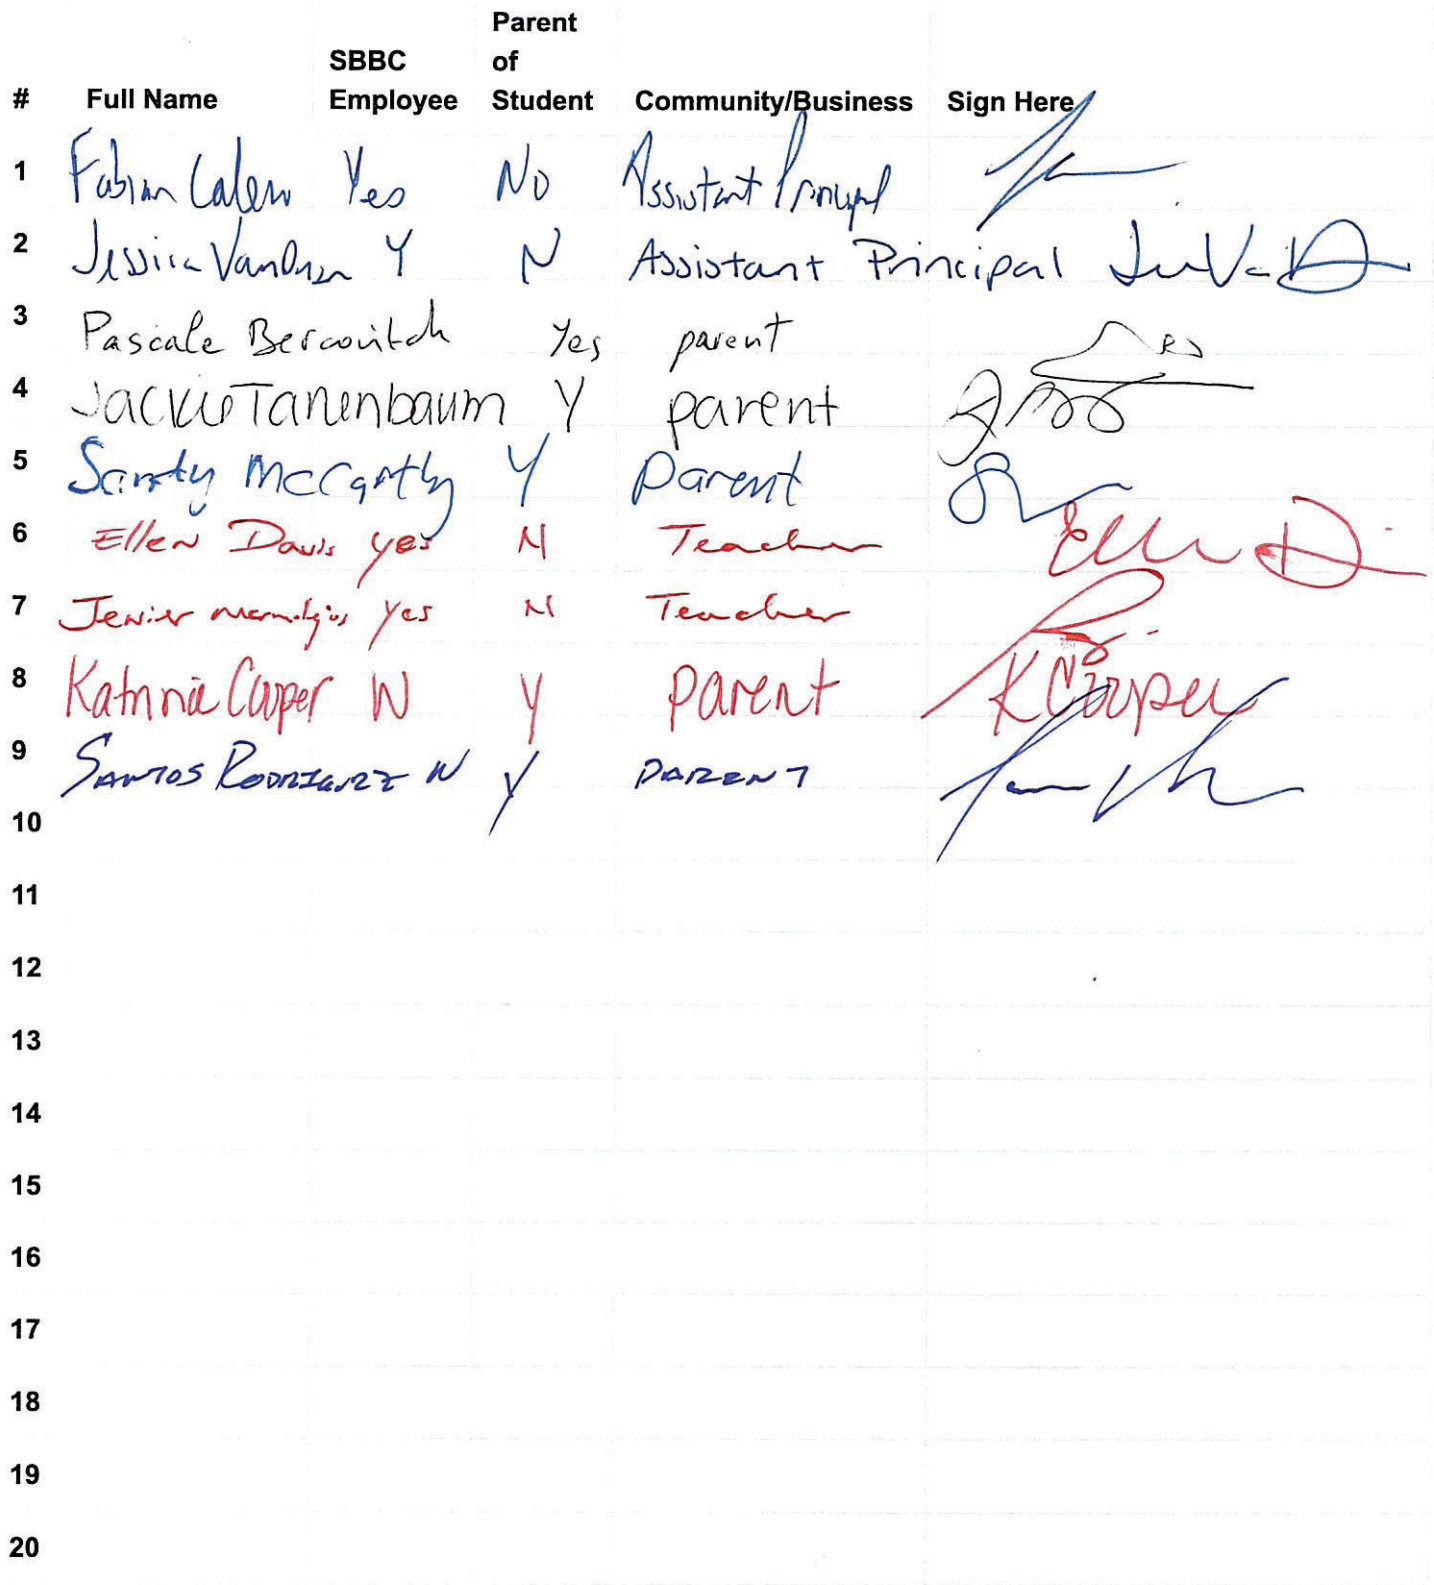 Parent
SBBC of
# Full Name Employee Student Community/Business Sign Here
1 Fabian Calero Yes No Assistant Principal
2 Jessica Y N Assistant Principal
3 Pascale Bercovitch Yes parent
4 Jackie Tanenbaum Y parent
5 Sandy McCarthy Y Parent
6 Ellen Davis yes N Teacher
7 yes N Teacher
8 Katrina Cooper N Y parent K Cooper
9 SANTOS RODRIGUEZ N Y PARENT
10
11
12
13
14
15
16
17
18
19
20